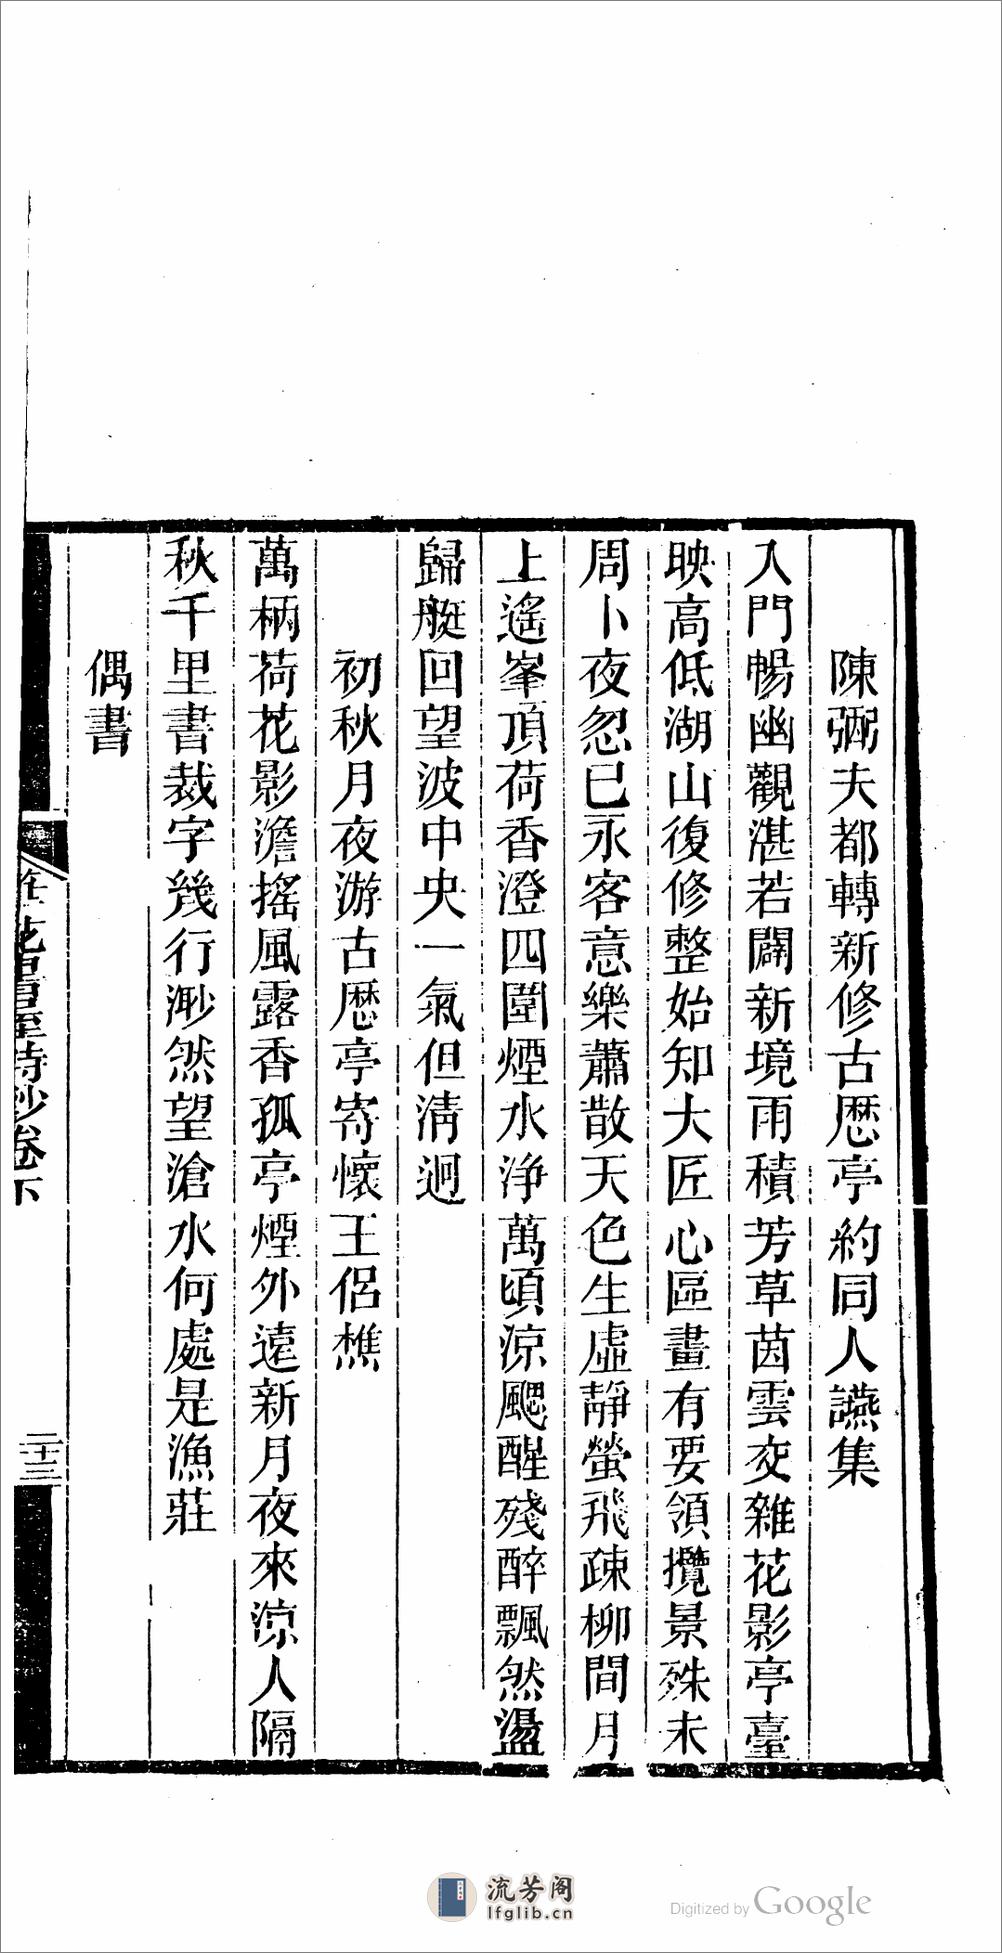 陳弼夫都轉新修古厯亭約同人讌集
入門暢幽觀湛若闢新境雨積芳草茵雲交雜花影亭臺
映高低湖山復修整始知大匠心區畫有要領攬景殊未
周卜夜忽已永客意樂蕭散天色生虛靜螢飛疎柳間月
上遙峯頂荷香澄四圍煙水浄萬頃涼颸醒殘醉飄然盪
歸艇回望波中央一氣但清迥
初秋月夜游古厯亭寄懷王侶樵
萬柄荷花影澹搖風露香孤亭煙外遠新月夜來涼人隔
秋千里書裁字幾行渺然望滄水何處是漁莊
偶書
詩鈔卷下
二十三
流芳阁
lfglib.cn
Digitized by Google